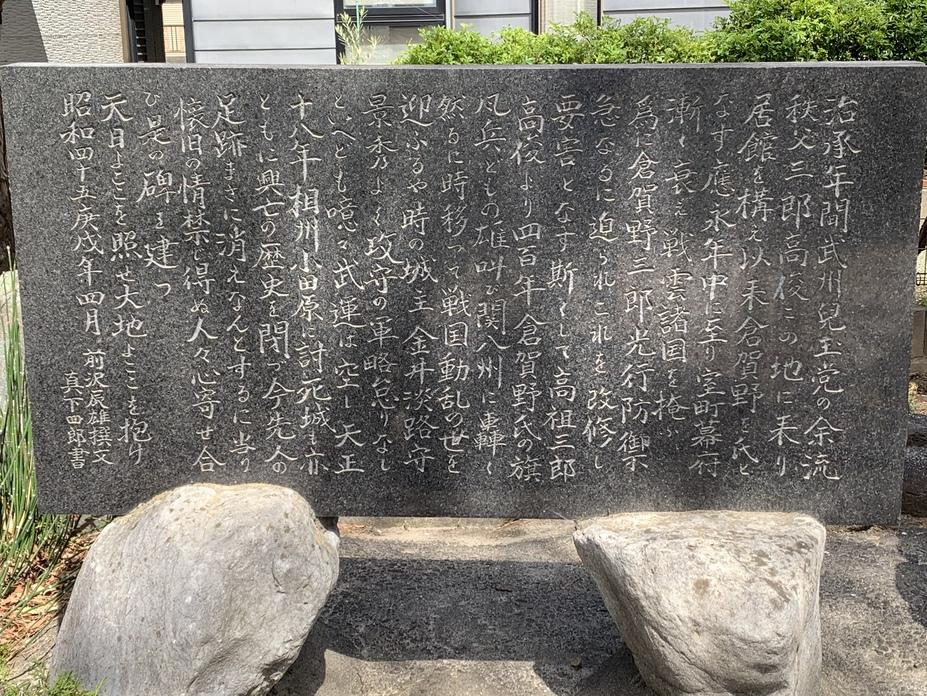 治承年間武州兒玉党の余流
秩父三郎高俊この地に来り
居館を構え以来倉賀野を氏と
なす應永年中に至り室町幕府
漸く衰え戦雲諸国を掩う
為に倉賀野三郎光行防禦
急なるに迫られこれを改修し
要害となす斯くして高祖三郎
高俊より四百年倉賀野氏の旗
風兵どもの雄叫び関八州に轟く
然るに時移って戦国動乱の世を
迎ふるや時の城主金井淡路守
景秀乃よく攻守の軍略怠りなし
といへども噫々武運は空し天正
十八年相州小田原に討死城も亦
ともに興亡の歴史を閉づ今先人の
足跡まさに消えなんとするに当り
懐旧の情禁じ得ぬ人々心寄せ合
ひ是の碑を建つ
天日よここを照せ大地よここを抱け
昭和四十五庚戌年四月 前沢辰雄撰文
真下四郎書